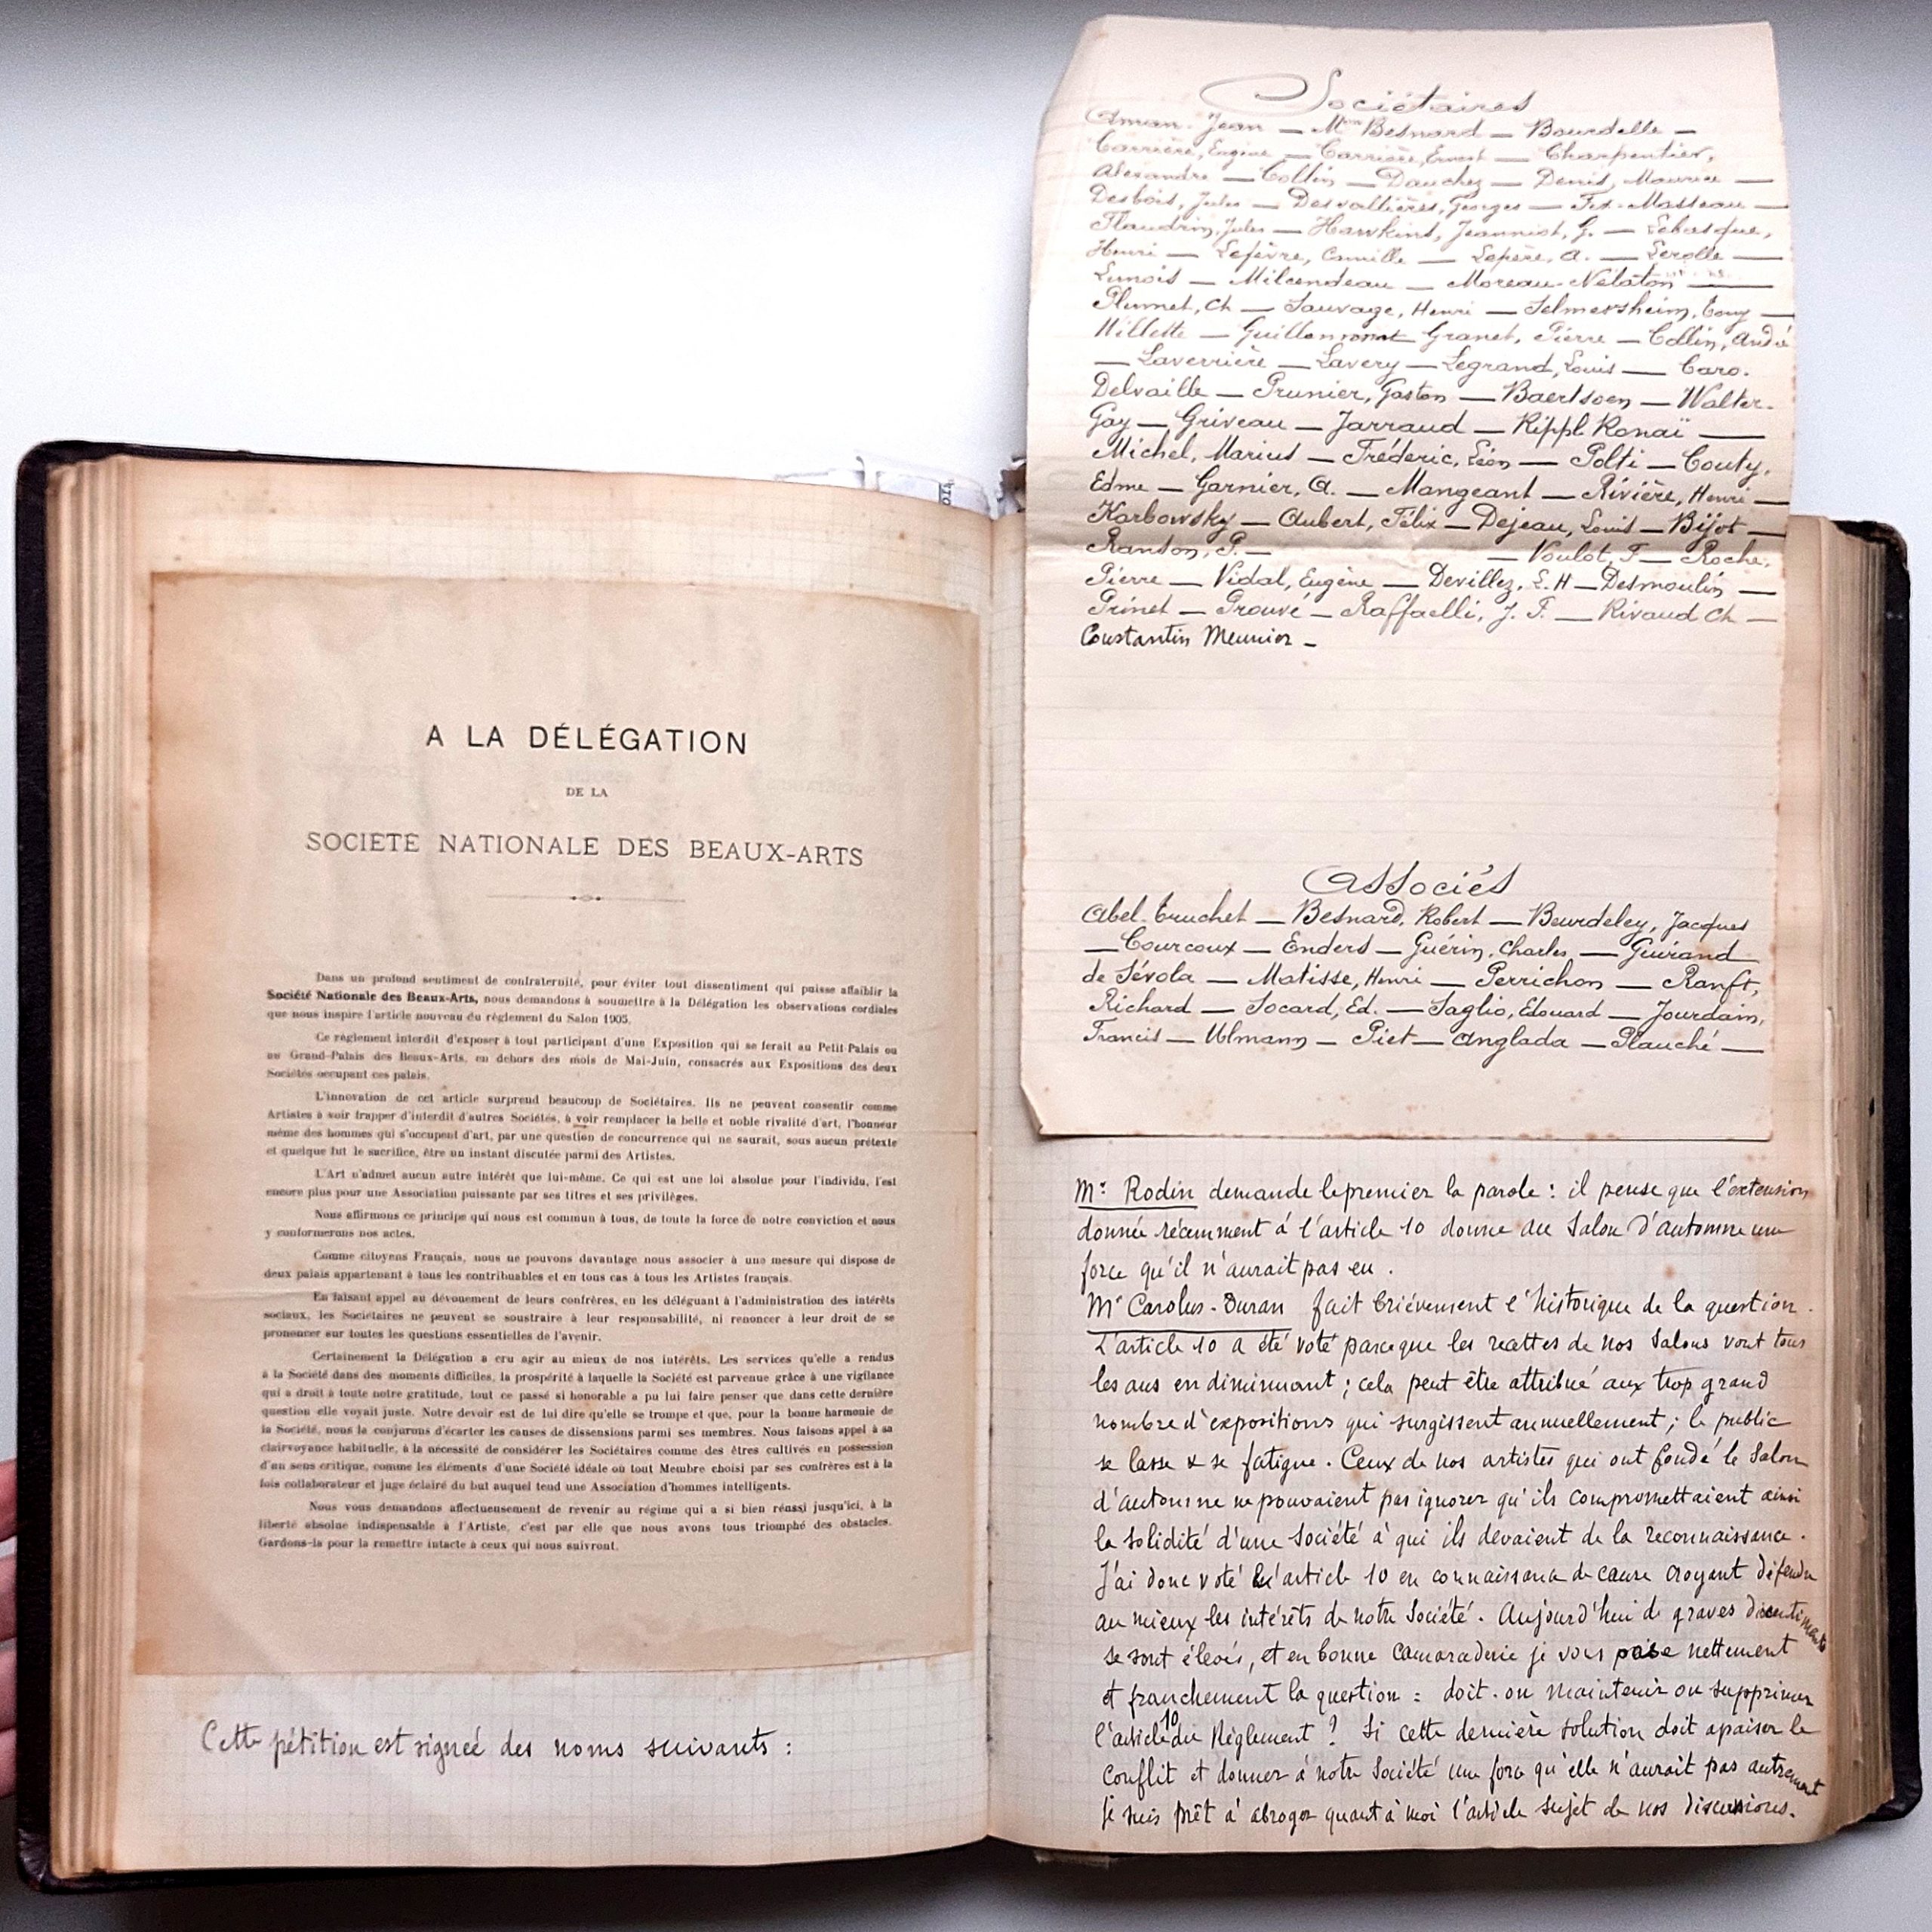 A LA DÉLÉGATION
DE LA
SOCIÉTÉ NATIONALE DES BEAUX-ARTS
Dans un profond sentiment de confraternité, pour éviter tout dissentiment qui puisse affaiblir la
Société Nationale des Beaux-Arts, nous demandons à soumettre à la Délégation les observations cordiales
que nous inspire l'article nouveau du règlement du Salon 1905.
Ce règlement interdit d'exposer à tout participant d'une Exposition qui se ferait au Petit-Palais ou
au Grand-Palais des Beaux-Arts, en dehors des mois de Mai-Juin, consacrés aux Expositions des deux
Sociétés occupant ces palais.
L'innovation de cet article surprend beaucoup de Sociétaires. Ils ne peuvent consentir comme
Artistes à voir frapper d'interdit d'autres Sociétés, à voir remplacer la belle et noble rivalité d'art, l'honneur
même des hommes qui s'occupent d'art, par une question de concurrence qui ne saurait, sous aucun prétexte
et quelque fut le sacrifice, être un instant discutée parmi des Artistes.
L'Art n'admet aucun autre intérêt que lui-même. Ce qui est une loi absolue pour l'individu, l'est
encore plus pour une Association puissante par ses titres et ses privilèges.
Nous affirmons ce principe qui nous est commun à tous, de toute la force de notre conviction et nous
y conformerons nos actes.
Comme citoyens Français, nous ne pouvons davantage nous associer à une mesure qui dispose de
deux palais appartenant à tous les contribuables et en tous cas à tous les Artistes français.
En faisant appel au dévouement de leurs confrères, en les déléguant à l'administration des intérêts
sociaux, les Sociétaires ne peuvent se soustraire à leur responsabilité, ni renoncer à leur droit de se
prononcer sur toutes les questions essentielles de l'avenir.
Certainement la Délégation a cru agir au mieux de nos intérêts. Les services qu'elle a rendus
à la Société dans des moments difficiles, la prospérité à laquelle la Société est parvenue grâce à une vigilance
qui a droit à toute notre gratitude, tout ce passé si honorable a pu lui faire penser que dans cette dernière
question elle voyait juste. Notre devoir est de lui dire qu'elle se trompe et que, pour la bonne harmonie de
la Société, nous la conjurons d'écarter les causes de dissensions parmi ses membres. Nous faisons appel à sa
clairvoyance habituelle, à la nécessité de considérer les Sociétaires comme des êtres cultivés en possession
d'un sens critique, comme les éléments d'une Société idéale où tout Membre choisi par ses confrères est à la
fois collaborateur et juge éclairé du but auquel tend une Association d'hommes intelligents.
Nous vous demandons affectueusement de revenir au régime qui a si bien réussi jusqu'ici, à la
liberté absolue indispensable à l'Artiste, c'est par elle que nous avons tous triomphé des obstacles.
Gardons-la pour la remettre intacte à ceux qui nous suivront.
Cette pétition est signée des noms suivants :
Sociétaires
Aman-Jean — Mme Besnard — Bourdelle —
Carrière, Eugène — Carrière, Ernest — Charpentier,
Alexandre — Collin — Dauchez — Denis, Maurice —
Desbois, Jules — Desvallières, Georges — Fix-Masseau —
Flandrin, Jules — Hawkins, Jeanniot, G. — Lebasque,
Henri — Lefèvre, Camille — Lepère, A. — Lerolle —
Lunois — Milcendeau — Moreau-Nélaton —
Plumet, Ch — Sauvage, Henri — Selmersheim, Tony —
Willette — Guillemonat Granet, Pierre — Collin, André
— Laverrière — Lavery — Legrand, Louis — Caro-
Delvaille — Prunier, Gaston — Baertsoen — Walter-
Gay — Griveau — Jarraud — Rippl Ronaï —
Michel, Marius — Fréderic, Léon — Polti — Couty,
Edme — Garnier, A. — Mangeant — Rivière, Henri —
Karbowsky — Aubert, Félix — Dejean, Louis — Bijot —
Ranson, P. — — Voulot, F — Roche,
Pierre — Vidal, Eugène — Devillez, L.H — Desmoulin —
Prinet — Prouvé — Raffaelli, J. F. — Rivaud Ch —
Constantin Meunier —
Associés
Abel-Truchet — Besnard, Robert — Beurdeley, Jacques
— Courcoux — Enders — Guérin, Charles — Guirand
de Sévola — Matisse, Henri — Perrichon — Ranft,
Richard — Socard, Ed. — Saglio, Edouard — Jourdain,
Francis — Ulmann — Piet — Anglada — Planché —
Mr Rodin demande le premier la parole : il pense que l'extension
donnée récemment à l'article 10 donne au Salon d'automne une
force qu'il n'aurait pas eu.
Mr Carolus-Duran fait brièvement l'historique de la question.
L'article 10 a été voté parce que les recettes de nos Salons vont tous
les ans en diminuant ; cela peut être attribué aux trop grand
nombre d'expositions qui surgissent annuellement ; le public
se lasse & se fatigue. Ceux de nos artistes qui ont fondé le Salon
d'automne ne pouvaient pas ignorer qu'ils compromettaient ainsi
la solidité d'une Société à qui ils devaient de la reconnaissance.
J'ai donc voté l'article 10 en connaissance de cause croyant défendre
au mieux les intérêts de notre Société. Aujourd'hui de graves dissentiments
se sont élevés, et en bonne camaraderie je vous pose nettement
et franchement la question : doit-on maintenir ou supprimer
l'article 10 du Règlement ? Si cette dernière solution doit apaiser le
conflit et donner à notre Société une force qu'elle n'aurait pas autrement
je suis prêt à abroger quant à moi l'article sujet de nos discussions.